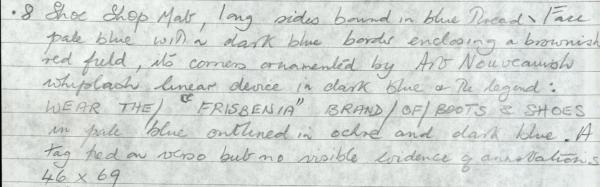 . 8 Shoe Shop Mats, long sides bound in blue Thread. Face
pale blue with a dark blue border enclosing a brownish
red field, its corners ornamented by Art Nouveauish
whiplash linear device in dark blue & the legend:
WEAR THE/ "FRISBENIA" BRAND/OF/BOOTS & SHOES
in pale blue outlined in ochre and dark blue. A
tag tied on verso but no visible evidence of annotations
46 x 69